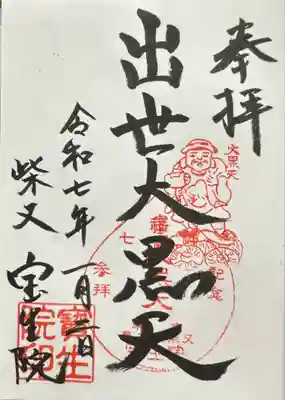 奉拝
出世大黒天
令和七年一月三日
柴又 宝生院
大黒天
記念
参拝
寶生
院印